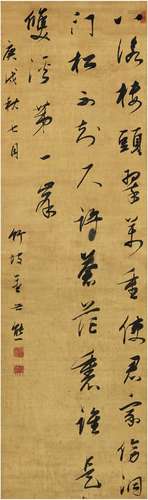 八詠樓頭翠萬重使君家傍洞
門松不知尺許蒼茫裏誰是
雙溪第一峯
庚戌秋七月
竹坡